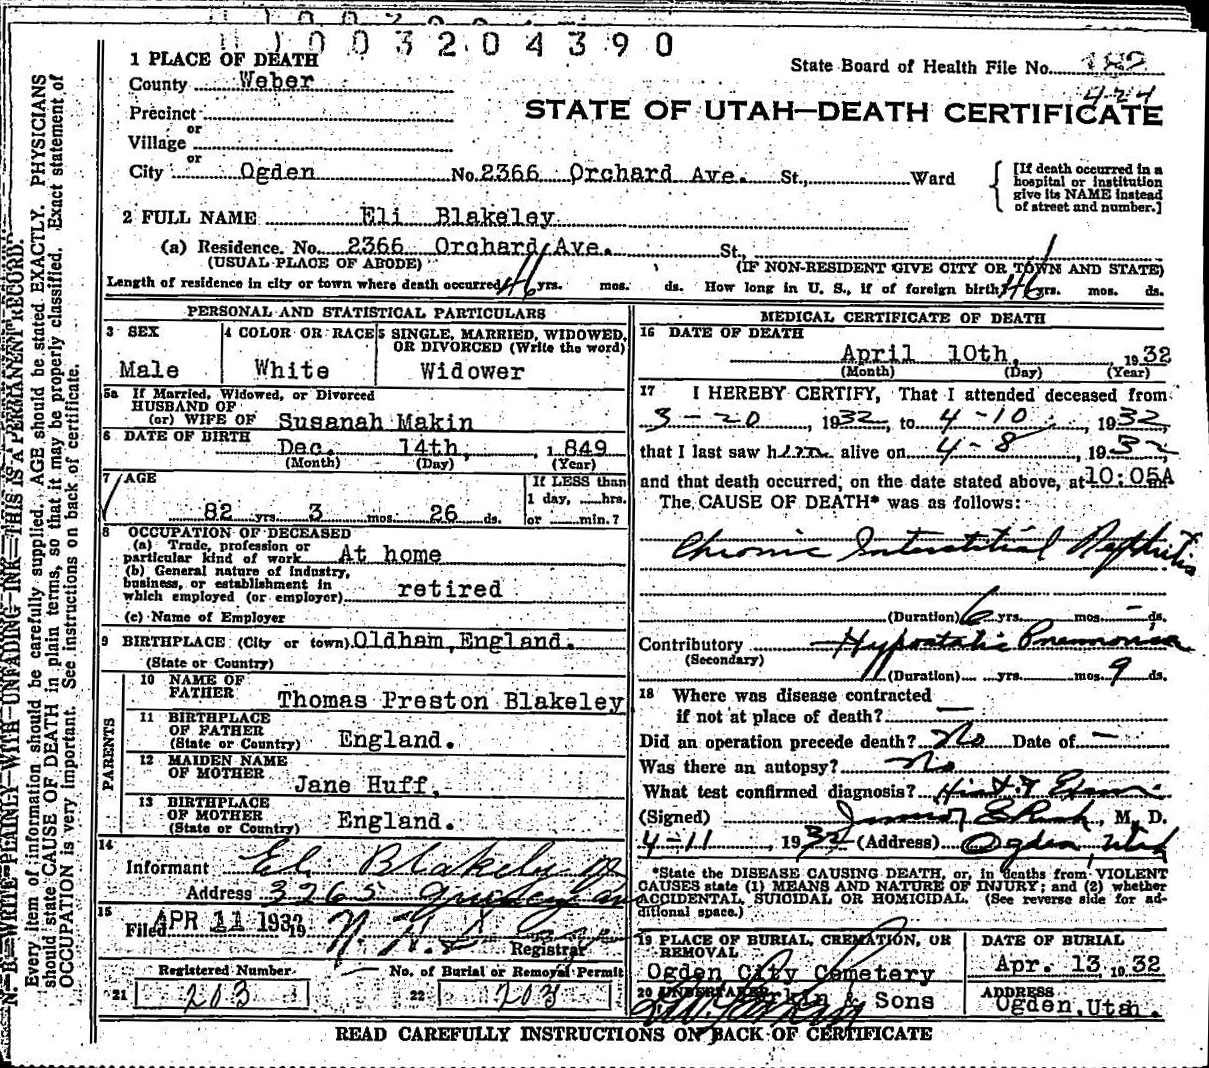 1003204390
1 PLACE OF DEATH
County Weber
State Board of Health File No. 182
424
Precinct
or
Village
STATE OF UTAH—DEATH CERTIFICATE
or
City Ogden No. 2366 Orchard Ave. St., Ward
[If death occurred in a hospital or institution give its NAME instead of street and number.]
2 FULL NAME Eli Blakeley
(a) Residence. No. 2366 Orchard Ave. St.
(USUAL PLACE OF ABODE) (IF NON-RESIDENT GIVE CITY OR TOWN AND STATE)
Length of residence in city or town where death occurred 46 yrs. mos. ds. How long in U. S., if of foreign birth? 46 yrs. mos. ds.
PERSONAL AND STATISTICAL PARTICULARS
3 SEX
Male
4 COLOR OR RACE
White
5 SINGLE, MARRIED, WIDOWED, OR DIVORCED (Write the word)
Widower
5a If Married, Widowed, or Divorced
HUSBAND OF
(or) WIFE OF Susanah Makin
6 DATE OF BIRTH
Dec. 14th, 1849
(Month) (Day) (Year)
7 AGE
82 yrs. 3 mos. 26 ds.
If LESS than
1 day, hrs.
or min.?
8 OCCUPATION OF DECEASED
(a) Trade, profession or
particular kind of work At home
(b) General nature of industry,
business, or establishment in
which employed (or employer) retired
(c) Name of Employer
9 BIRTHPLACE (City or town) Oldham, England.
(State or Country)
PARENTS
10 NAME OF
FATHER Thomas Preston Blakeley
11 BIRTHPLACE
OF FATHER
(State or Country) England.
12 MAIDEN NAME
OF MOTHER
Jane Huff,
13 BIRTHPLACE
OF MOTHER
(State or Country) England.
14
Informant Eli Blakely
Address 3265
15
Filed APR 11 1932 19
Registrar
Registered Number
21 203
No. of Burial or Removal Permit
22 203
MEDICAL CERTIFICATE OF DEATH
16 DATE OF DEATH
April 10th, 1932
(Month) (Day) (Year)
17 I HEREBY CERTIFY, That I attended deceased from
3-20, 1932, to 4-10, 1932,
that I last saw him alive on 4-8, 1932,
and that death occurred, on the date stated above, at 10:05A m
The CAUSE OF DEATH* was as follows:
Chronic Interstitial Nephritis
(Duration) 6 yrs. mos. - ds.
Contributory Hypostatic Pneumonia
(Secondary)
(Duration) yrs. mos. 9 ds.
18 Where was disease contracted
if not at place of death? —
Did an operation precede death? No Date of —
Was there an autopsy? No
What test confirmed diagnosis?
(Signed) M. D.
4-11, 1932 (Address) Ogden, Utah
*State the DISEASE CAUSING DEATH, or, in deaths from VIOLENT
CAUSES state (1) MEANS AND NATURE OF INJURY; and (2) whether
ACCIDENTAL, SUICIDAL OR HOMICIDAL. (See reverse side for ad-
ditional space.)
19 PLACE OF BURIAL, CREMATION, OR
REMOVAL
Ogden City Cemetery
DATE OF BURIAL
Apr. 13, 1932
20 UNDERTAKER
Larkin & Sons
ADDRESS
Ogden, Utah.
READ CAREFULLY INSTRUCTIONS ON BACK OF CERTIFICATE
N. B.—WRITE PLAINLY WITH UNFADING INK—THIS IS A PERMANENT RECORD.
Every item of information should be carefully supplied. AGE should be stated EXACTLY. PHYSICIANS
should state CAUSE OF DEATH in plain terms, so that it may be properly classified. Exact statement of
OCCUPATION is very important. See instructions on back of certificate.